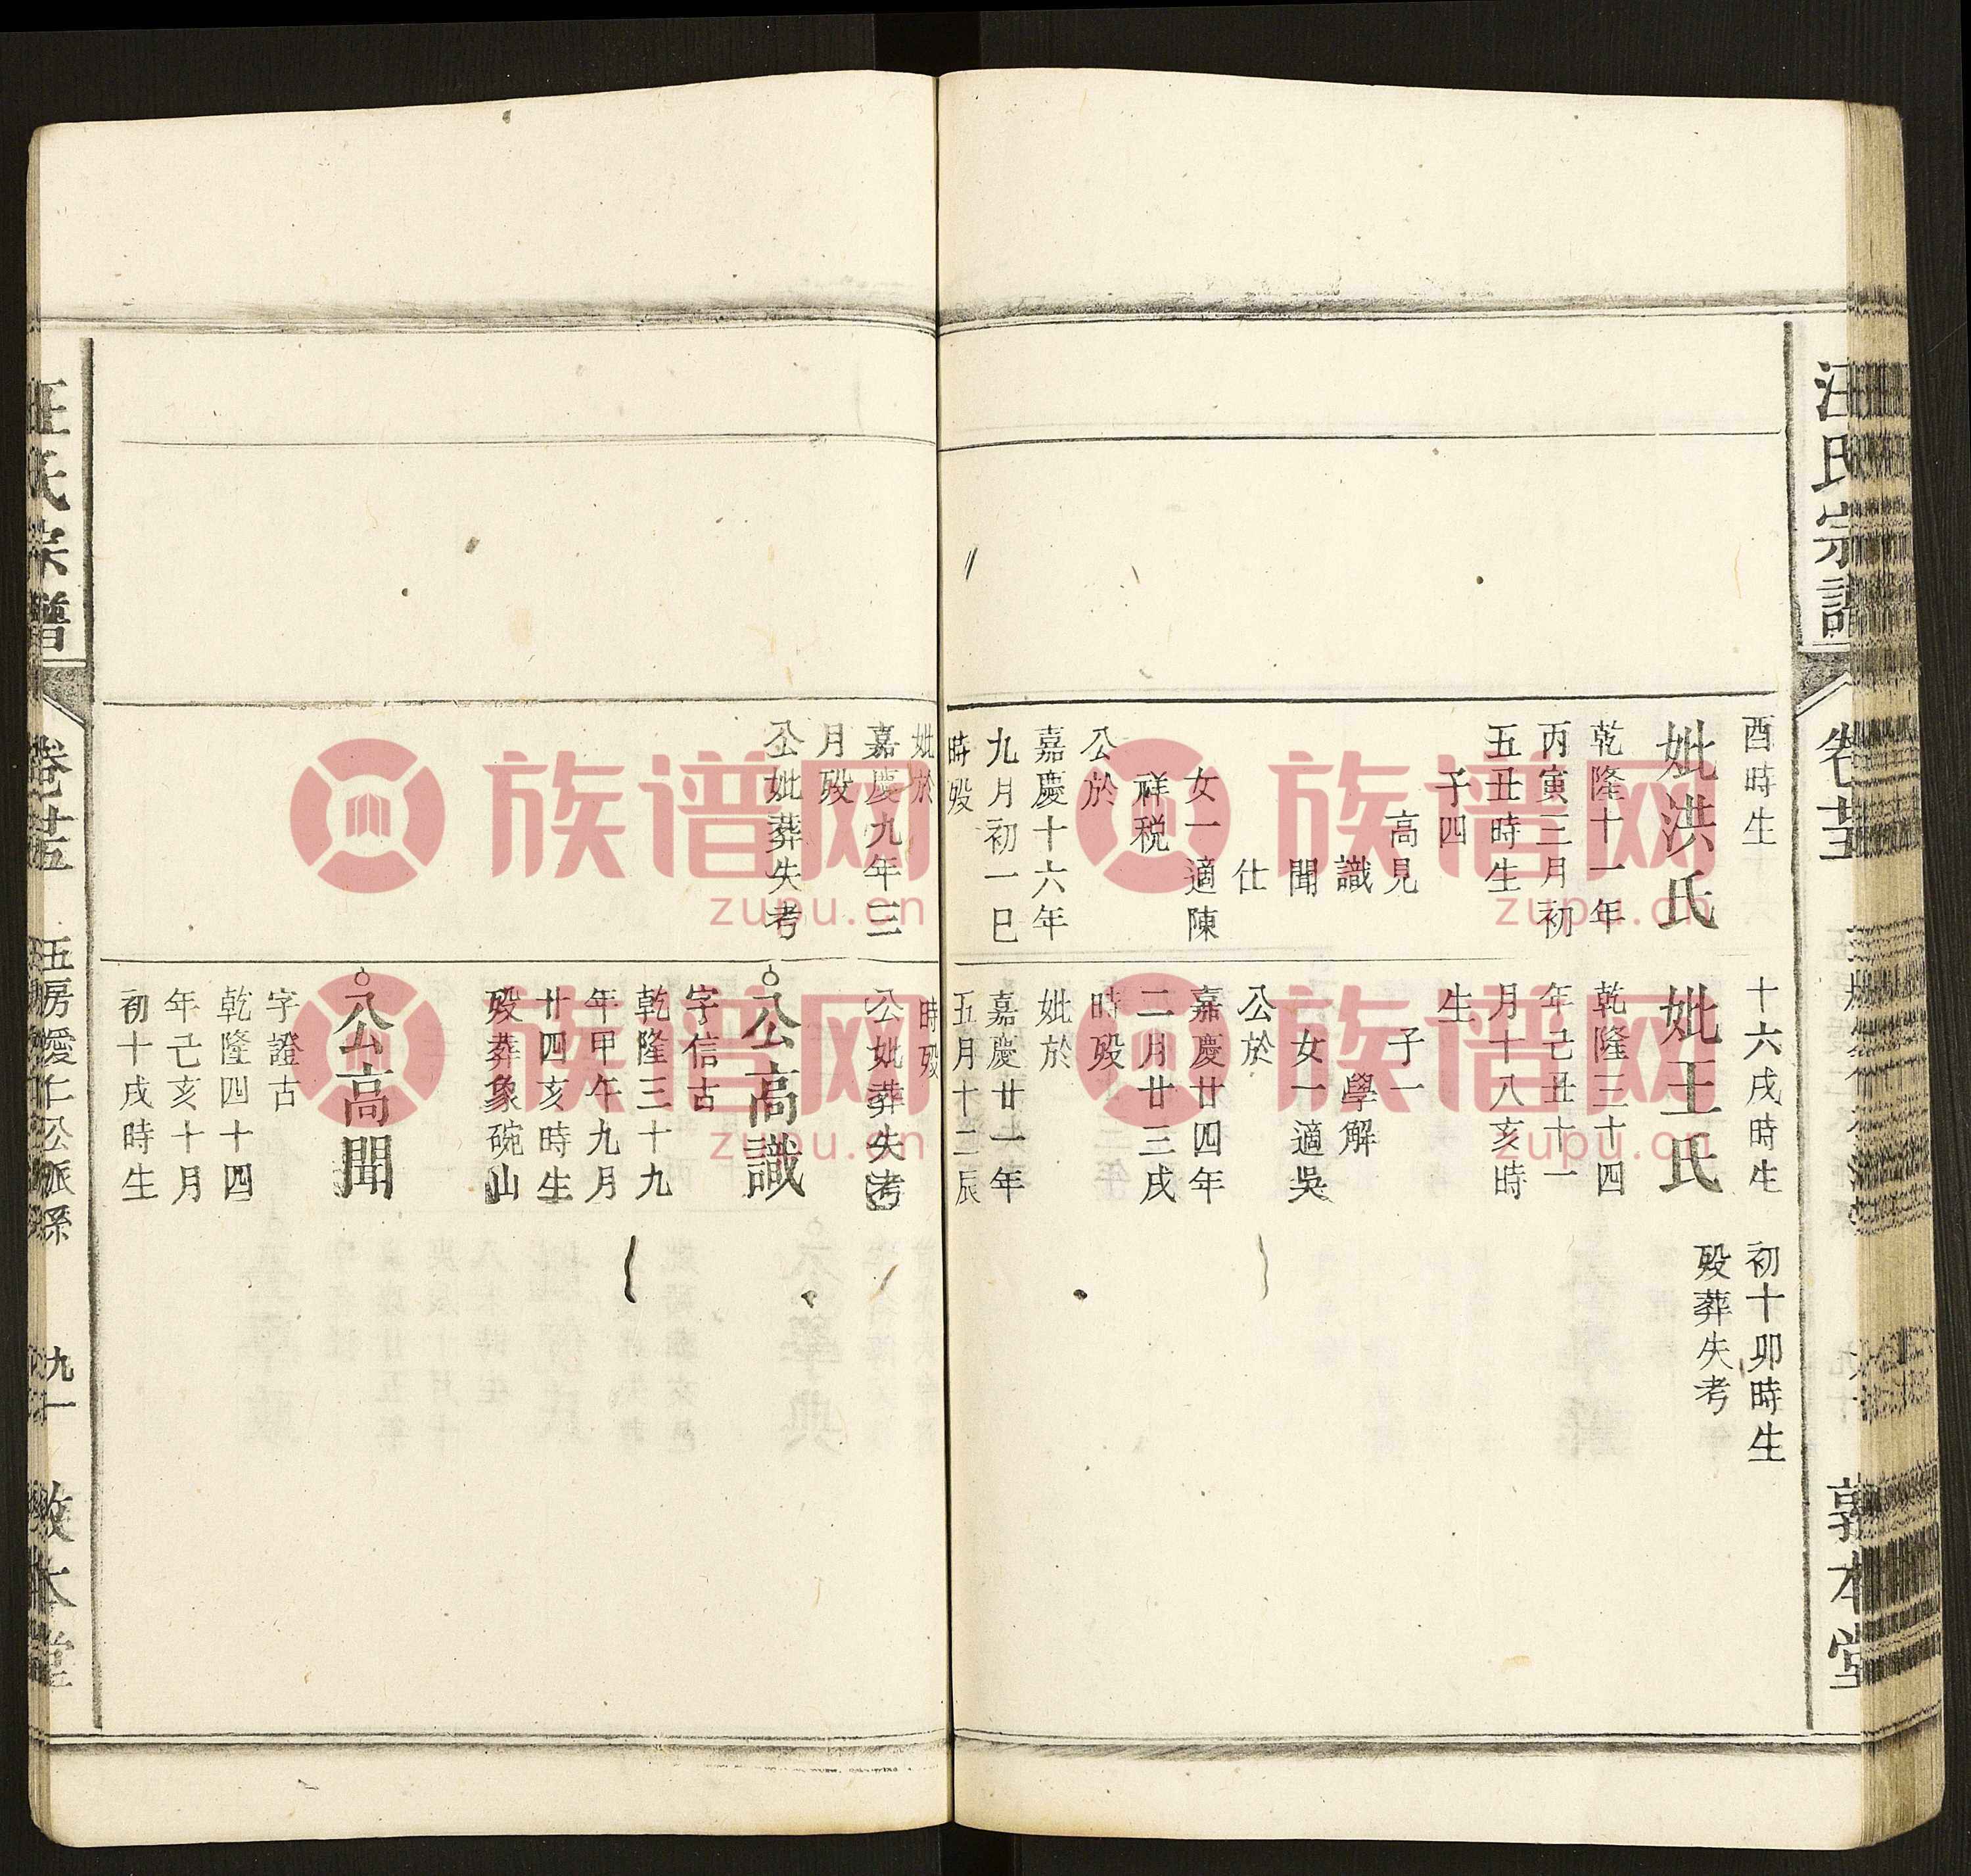 汪氏宗譜
卷廿五
敦本堂
酉時生
妣洪氏
乾隆十一年
丙寅三月初
五丑時生
子四
高見
識
聞
仕
女一適陳
祥税
公於
嘉慶十六年
九月初一巳
時殁
妣於
嘉慶九年三
月殁
公妣葬失考
十六戌時生
妣王氏
乾隆三十四
年己丑十一
月十八亥時
生
子一
學解
女一適吳
公於
嘉慶廿四年
二月廿三戌
時殁
妣於
嘉慶廿一年
五月十二辰
時殁
公妣葬失考
公高識
字信古
乾隆三十九
年甲午九月
廿四亥時生
殁葬象碗山
公高聞
字證古
乾隆四十四
年己亥十月
初十戌時生
初十卯時生
殁葬失考
汪氏宗譜
卷廿五
五房愛仁公派系
九十一
敦本堂
族谱网
zupu.cn
族谱网
zupu.cn
族谱网
zupu.cn
族谱网
zupu.cn